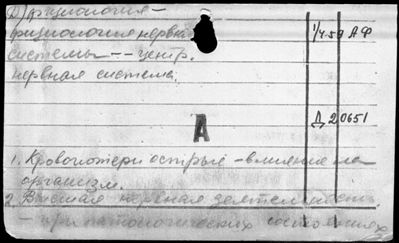 Д) физиология –
физиология нервн. 1/4.59 АФ
системы -- центр.
нервная система.
Д 20651
А
1. Кровопотери острые – влияние на
организм.
2. Высшая нервная деятельность
– при патологических состояниях